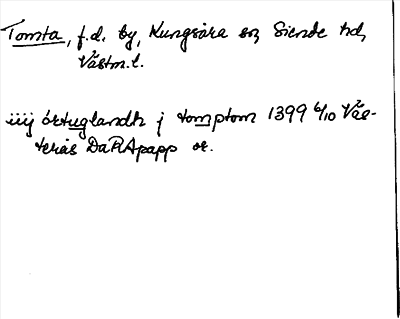 Tomta, f.d. by, Kungsåra sn, Siende hd,
Västm.l.
iiij örtuglandh j tomptom 1399 6/10 Väs-
terås DaRApapp or.